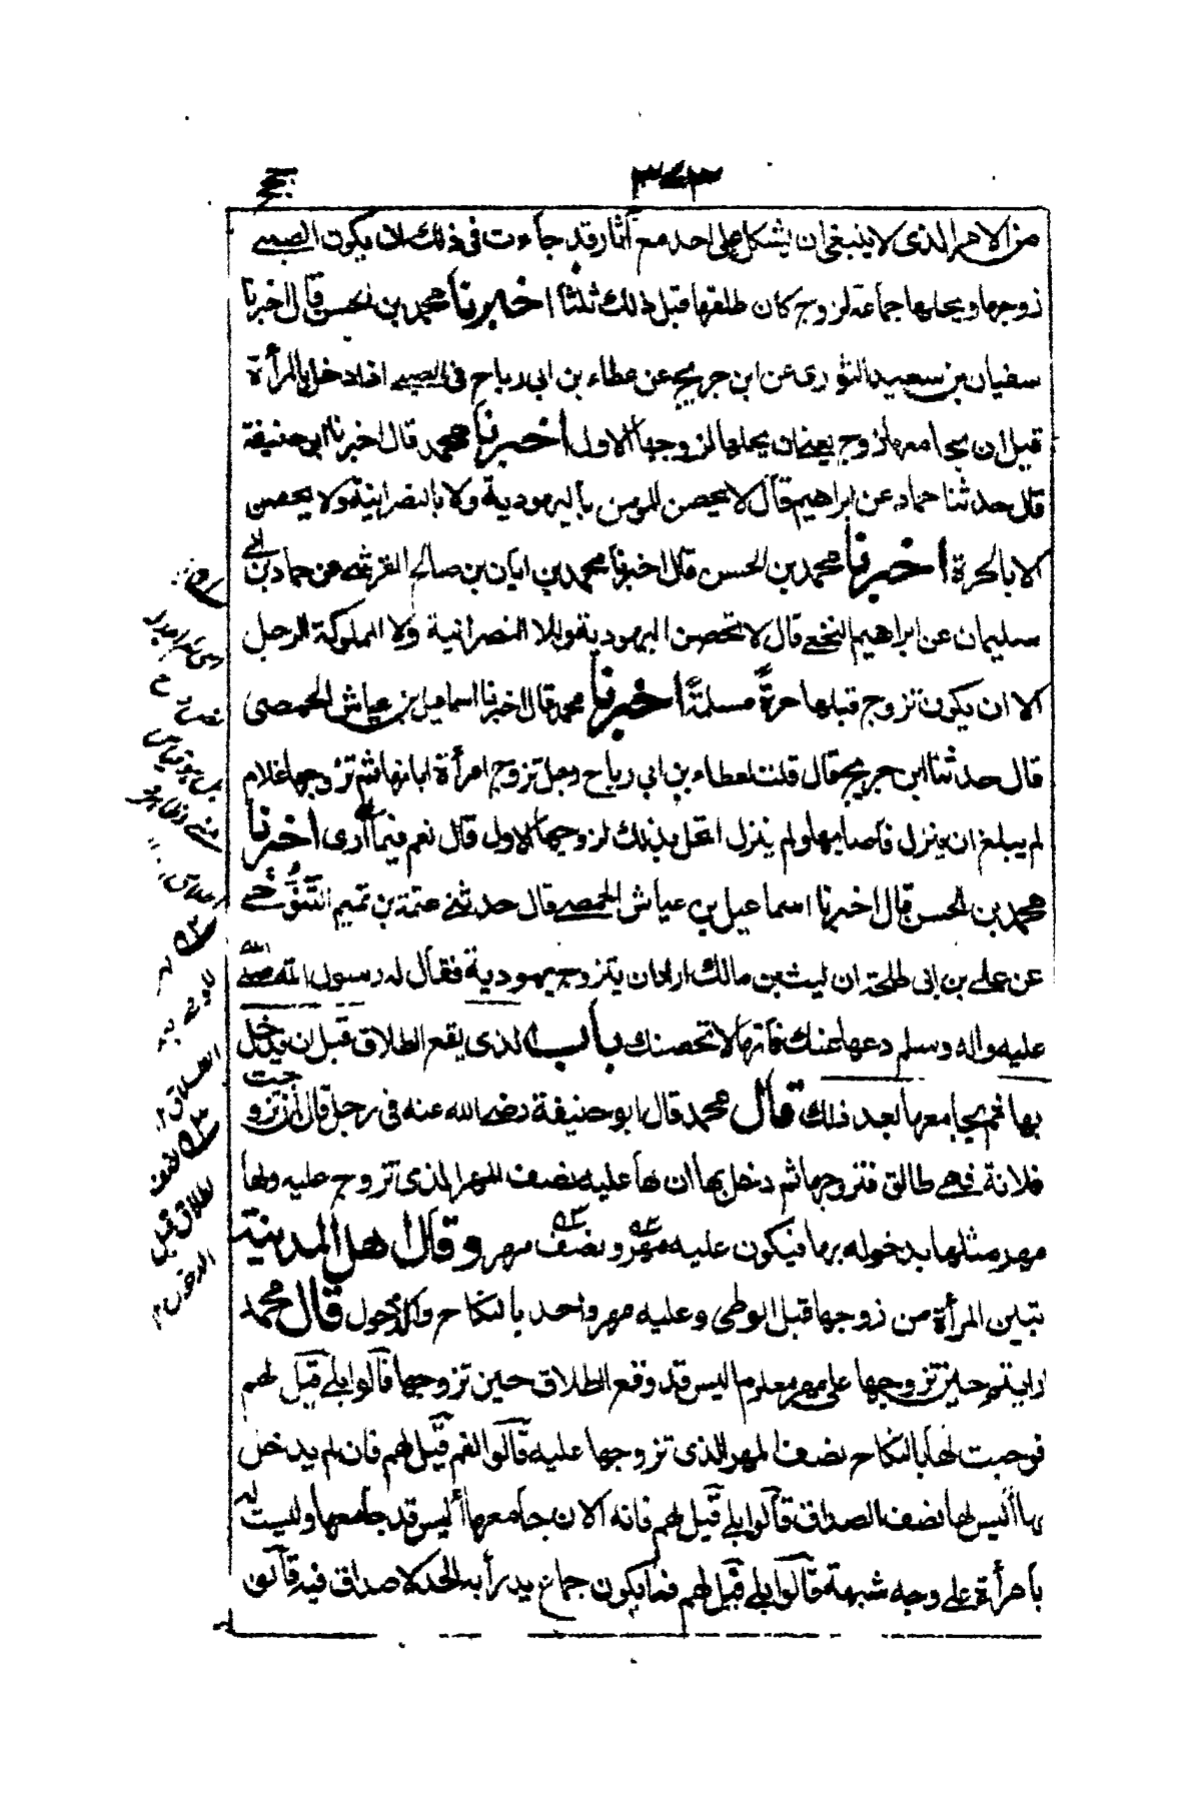 ٣٧٣
من الامر الذى لا ينبغى ان يشكل على احد مع آثار قد جاءت فى ذلك لان يكون الصبى
زوجها ويحلها جماعه لزوج كان طلقها قبل ذلك ثلثا اخبرنا محمد بن الحسن قال اخبرنا
سفيان بن سعيد الثورى عن ابن جريج عن عطاء بن ابى رباح فى الصبى اذا دخل بالمرأة
قبل ان يجامعها زوج يعنى ان يحلها لزوجها الاول اخبرنا محمد قال اخبرنا ابى حنيفة
قال حدثنا حماد عن ابراهيم قال لا يحصن المومن باليهودية ولا بالنصرانية ولا يحصن
الا بالحرة اخبرنا محمد بن الحسن قال اخبرنا محمد بن ابان بن صالح القرشى عن حماد بن ابى
سليمان عن ابراهيم النخعى قال لا تحصن اليهودية ولا النصرانية ولا المملوكة الرجل
الا ان يكون تزوج قبلها حرة مسلمة اخبرنا محمد قال اخبرنا اسماعيل بن عياش الحمصى
قال حدثنا ابن جريج قال قلت لعطاء بن ابى رباح رجل تزوج امرأة ابانها ثم تزوجها غلام
لم يبلغ ان ينزل فاصابها ولم ينزل اتحل بذلك لزوجها الاول قال نعم فيما أرى اخبرنا
محمد بن الحسن قال اخبرنا اسماعيل بن عياش الحمصى قال حدثنى عتمة بن تميم التنوخى
عن على بن ابى طلحة ان ليث بن مالك اراد ان يتزوج يهودية فقال له رسول الله صلى الله
عليه واله وسلم دعها عنك فانها لا تحصنك باب الذى يقع الطلاق قبل ان يدخل
بها ثم يجامعها بعد ذلك قال محمد قال ابو حنيفة رضى الله عنه فى رجل قال ان تزوجت
فلانة فهى طالق فتزوجها ثم دخل بها ان لها عليه نصف المهر الذى تزوج عليه ولها
مهر مثلها بدخوله بها فيكون عليه مهر ونصف مهر وقال اهل المدينة
تبين المرأة من زوجها قبل الوطى وعليه مهر واحد بالنكاح والدخول قال محمد
ارايتم حين تزوجها على مهر معلوم اليس قد وقع الطلاق حين تزوجها قالوا بلى قيل لهم
فوجبت لها بالنكاح نصف المهر الذى تزوجها عليه قالوا نعم قيل لهم فان لم يدخل
بها أليس لها نصف الصداق قالوا بلى قيل لهم فانه الان جامعها أليس قد جامعها وليست له
بامرأة على وجه شبهة قالوا بلى قيل لهم فهل يكون جماع يدرأ به الحد لا صداق فيه قالو
الطلاق
طلاق قبل
الدخول